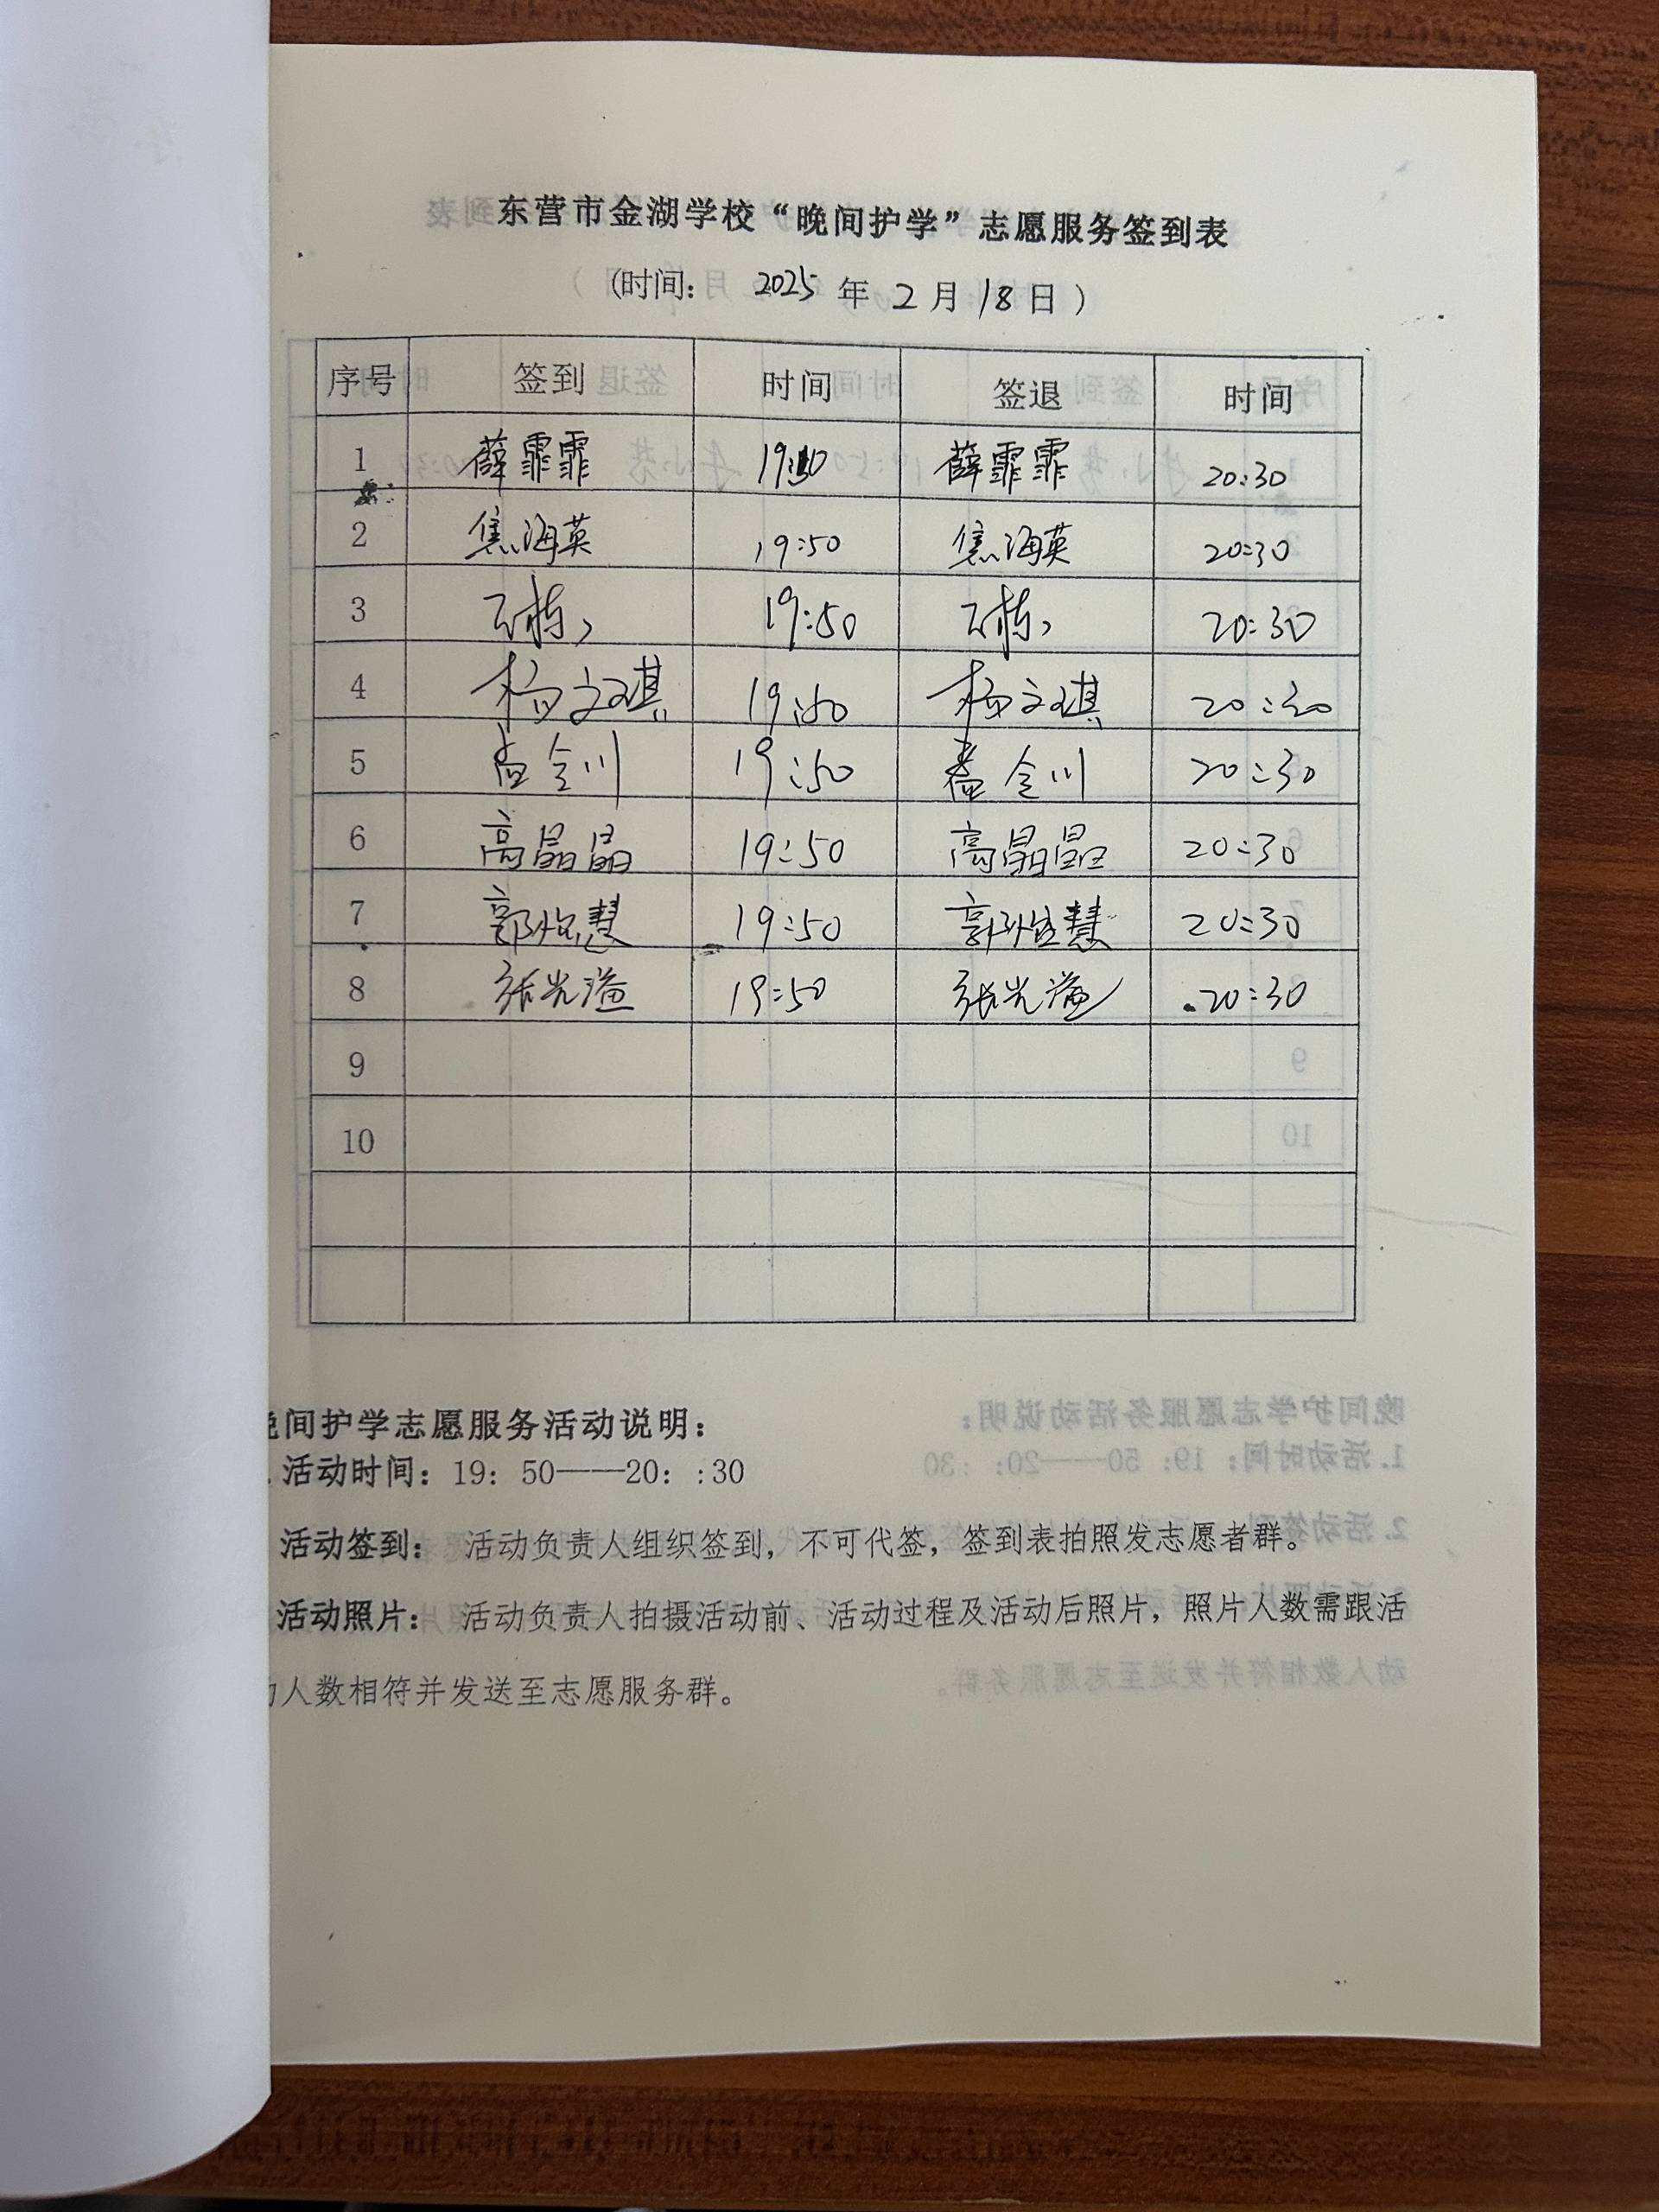 东营市金湖学校“晚间护学”志愿服务签到表
(时间: 2025 年 2 月 18 日 )
序号 签到 时间 签退 时间
1 薛霏霏 19:50 薛霏霏 20:30
2 焦海英 19:50 焦海英 20:30
3 19:50 20:30
4 杨文琪 19:50 杨文琪 20:30
5 孟令川 19:50 孟令川 20:30
6 高晶晶 19:50 高晶晶 20:30
7 19:50 20:30
8 张光溢 19:50 张光溢 20:30
9
10
间护学志愿服务活动说明:
. 活动时间: 19: 50——20: :30
活动签到: 活动负责人组织签到, 不可代签, 签到表拍照发志愿者群。
活动照片: 活动负责人拍摄活动前、活动过程及活动后照片, 照片人数需跟活
人数相符并发送至志愿服务群。